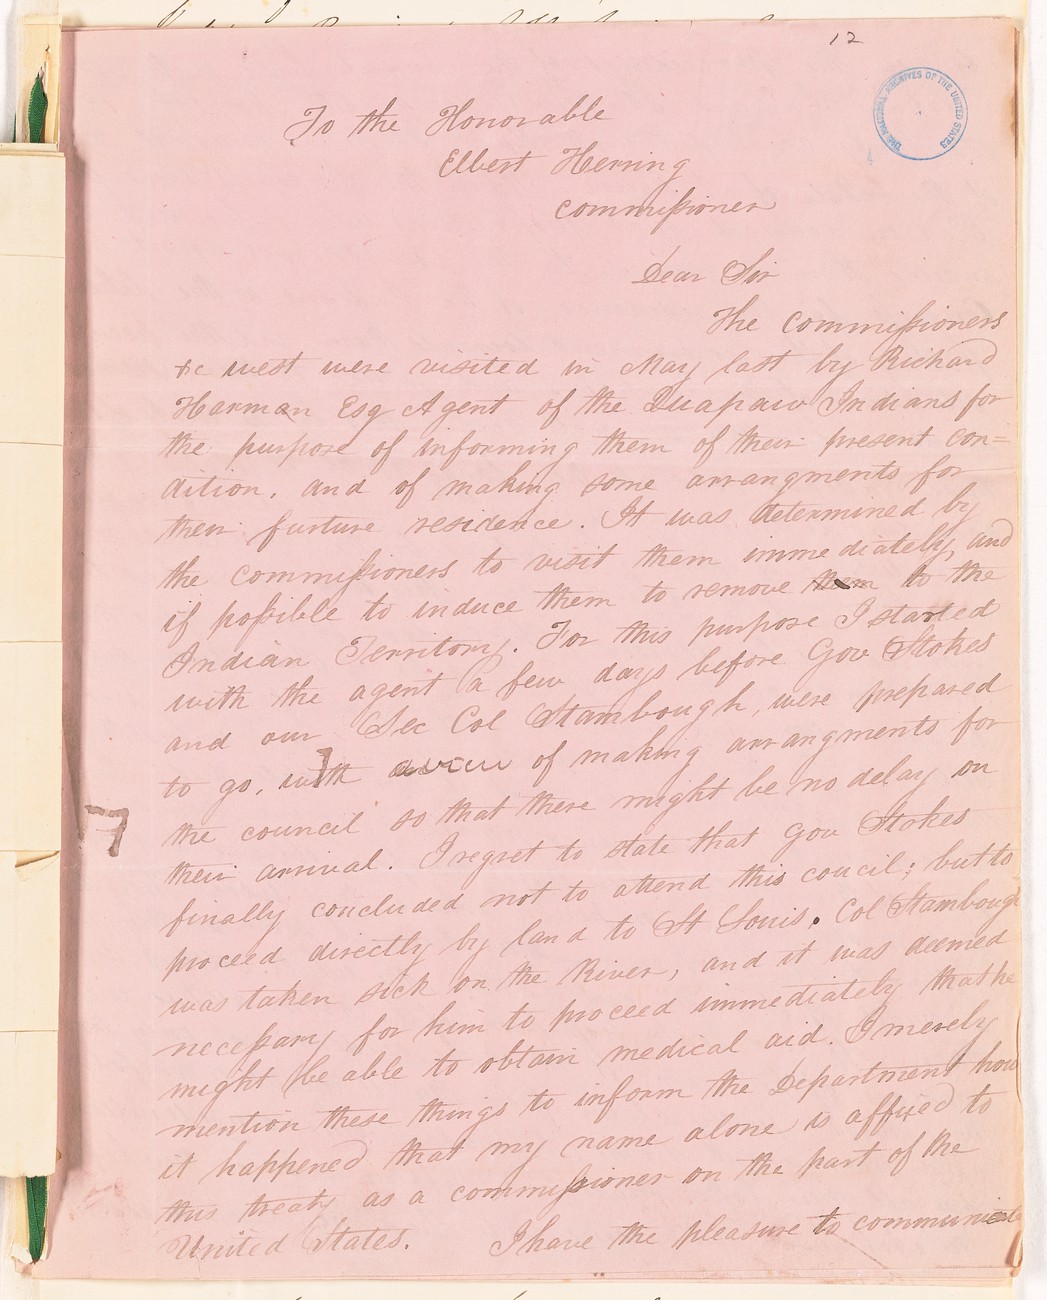 12
THE NATIONAL ARCHIVES OF THE UNITED STATES
To the Honorable
Elbert Herring
Commissioner
Dear Sir
The Commissioners
&c west were visited in May last by Richard
Harman Esq Agent of the Quapaw Indians for
the purpose of informing them of their present con=
dition, and of making some arrangments for
their furture residence. It was determined by
the commissioners to visit them immediately, and
if possible to induce them to remove them to the
Indian Territory. For this purpose I started
with the agent a few days before Gov Stokes
and our Sec Col Stambough, were prepared
to go, with a view of making arrangments for
the council so that there might be no delay on
their arrival. I regret to state that Gov Stokes
finally concluded not to attend this coucil; but to
proceed directly by land to St Louis. Col Stambough
was taken sick on the River, and it was deemed
necessary for him to proceed immediately that he
might be able to obtain medical aid. I merely
mention these things to inform the Department how
it happened that my name alone is affixed to
this treaty as a commissioner on the part of the
United States. I have the pleasure to communicate
7